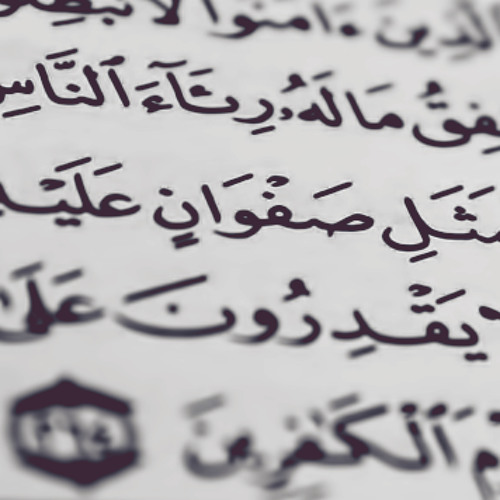 ٱلَّذِينَ ءَامَنُوا۟ لَا تُبْطِلُوا۟
يُنفِقُ مَالَهُۥ رِئَآءَ ٱلنَّاسِ
كَمَثَلِ صَفْوَانٍ عَلَيْهِ
يَقْدِرُونَ عَلَىٰ
ٱلْكَٰفِرِينَ ٢٦٤